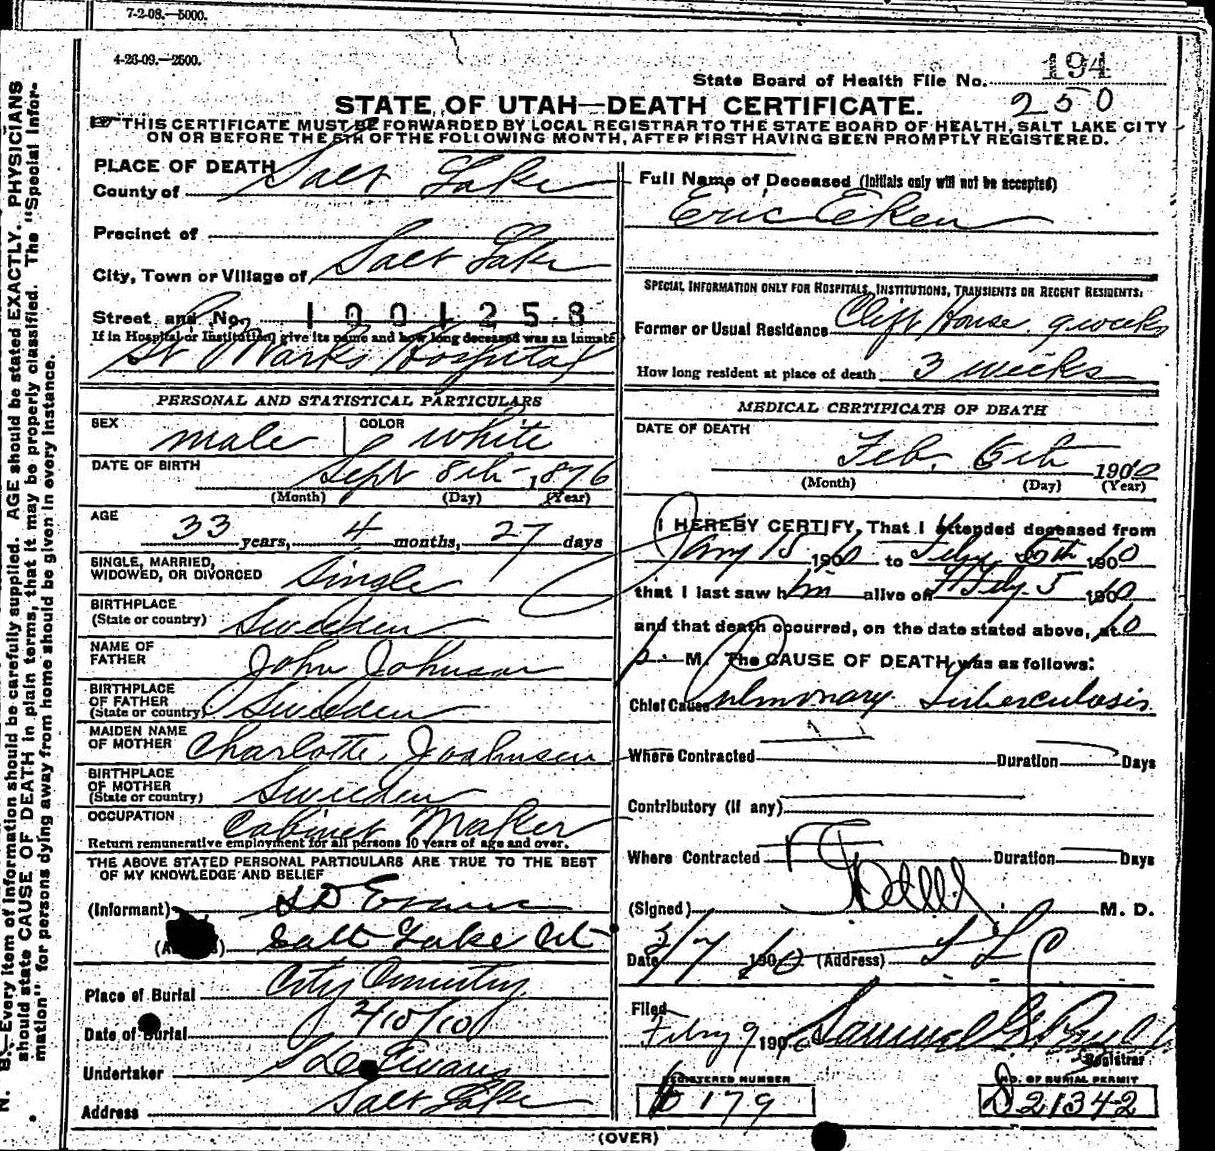 7-2-08.—5000.
4-26-09.—2500.
State Board of Health File No. 194
250
STATE OF UTAH—DEATH CERTIFICATE.
THIS CERTIFICATE MUST BE FORWARDED BY LOCAL REGISTRAR TO THE STATE BOARD OF HEALTH, SALT LAKE CITY
ON OR BEFORE THE 5TH OF THE FOLLOWING MONTH, AFTER FIRST HAVING BEEN PROMPTLY REGISTERED.
PLACE OF DEATH
County of Salt Lake
Precinct of
City, Town or Village of Salt Lake
Street and No. 1001258
If in Hospital or Institution, give its name and how long deceased was an inmate
St Marks Hospital
PERSONAL AND STATISTICAL PARTICULARS
SEX male COLOR white
DATE OF BIRTH Sept 8th 1876
(Month) (Day) (Year)
AGE 33 years, 4 months, 27 days
SINGLE, MARRIED,
WIDOWED, OR DIVORCED Single
BIRTHPLACE
(State or country) Sweden
NAME OF
FATHER John Johnson
BIRTHPLACE
OF FATHER
(State or country) Sweden
MAIDEN NAME
OF MOTHER Charlotte Joahnson
BIRTHPLACE
OF MOTHER
(State or country) Sweden
OCCUPATION Cabinet Maker
Return remunerative employment for all persons 10 years of age and over.
THE ABOVE STATED PERSONAL PARTICULARS ARE TRUE TO THE BEST
OF MY KNOWLEDGE AND BELIEF
(Informant) S D Evans
Salt Lake Ut
Place of Burial City Cemetery
Date of Burial 2/10/10
Undertaker S D Evans
Address Salt Lake
Full Name of Deceased (Initials only will not be accepted)
Eric Eken
SPECIAL INFORMATION ONLY FOR HOSPITALS, INSTITUTIONS, TRANSIENTS OR RECENT RESIDENTS:
Former or Usual Residence Clift House 9 weeks
How long resident at place of death 3 weeks
MEDICAL CERTIFICATE OF DEATH
DATE OF DEATH
Feb. 5th 1910
(Month) (Day) (Year)
I HEREBY CERTIFY, That I attended deceased from
Jany 15 1910 to 1910
that I last saw him alive on Feby. 5 1910
and that death occurred, on the date stated above, at 10
p. M. The CAUSE OF DEATH was as follows:
Chief Cause Pulmonary Tuberculosis
Where Contracted Duration Days
Contributory (if any)
Where Contracted Duration Days
(Signed) M. D.
Date 1910 (Address) S L C
Filed Febry 9 1910 Samuel G. Paul
Registrar
REGISTERED NUMBER
179
NO. OF BURIAL PERMIT
21342
(OVER)
N. B.—Every item of information should be carefully supplied. AGE should be stated EXACTLY. PHYSICIANS
should state CAUSE OF DEATH in plain terms, that it may be properly classified. The "Special Infor-
mation" for persons dying away from home should be given in every instance.